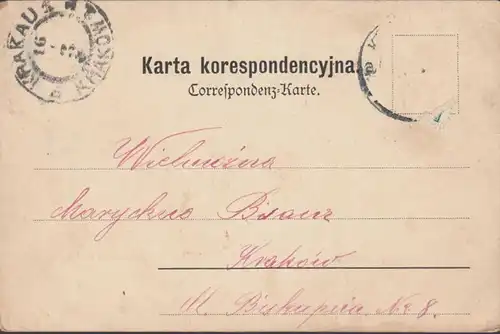 KRAKAU 1
KRAKÓW
16
Karta korespondencyjna.
Correspondenz-Karte.
Wielmożna
Kraków
Ul. Biskupia No 8.